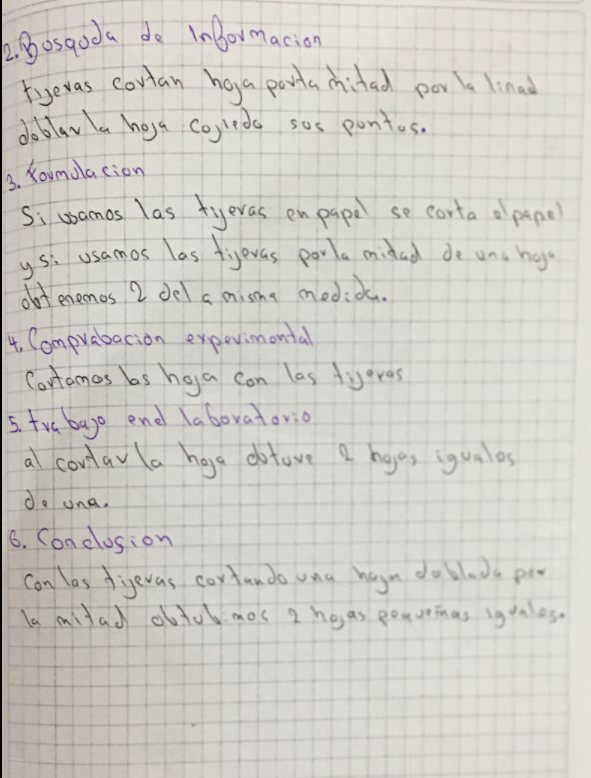 2. Bosqoda de Informacion
tijeras cortan hoja porla mitad por la linad
doblar la hoja cogiedo sus puntos.
3. Formulacion
Si usamos las tijeras en papel se corta el papel
y si usamos las tijeras porla mitad de una hoja
obtenemos 2 del a misma medida.
4. Comprabacion experimental
Cortamos las hoja con las tijeras
5. trabajo enel laboratorio
al cortar la hoja obtuve 2 hojas iguales
de una.
6. Conclusion
Con las tijeras cortando una hoja doblada por
la mitad obtubimos 2 hojas pequeñas iguales.